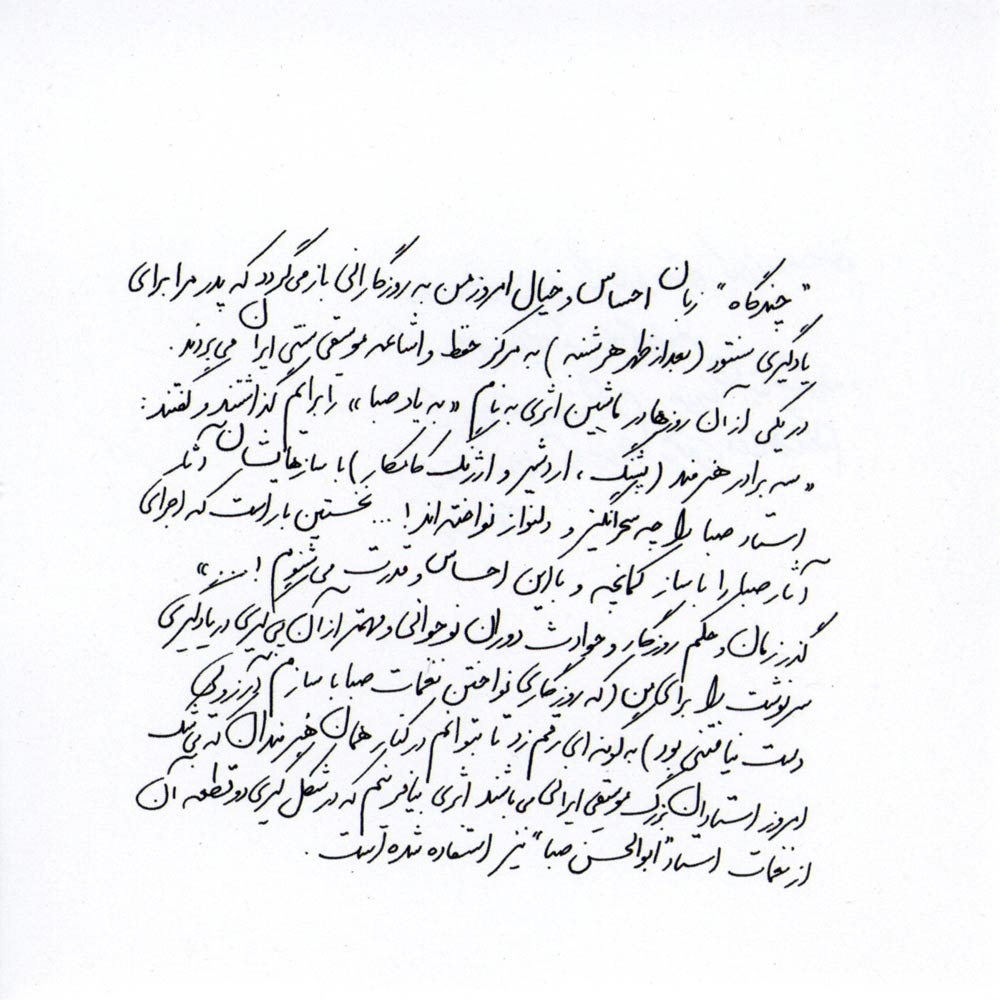 "چندگاه" زبان احساس و خیال امروز من به روزگارانی باز می‌گردد که پدر مرا برای
یادگیری سنتور (بعدازظهر هر شنبه) به مرکز حفظ و اشاعه موسیقی سنتی ایران می‌بردند.
در یکی از آن روزها در ماشین اثری به نام «به یاد صبا» را برایم گذاشتند و گفتند:
«سه برادر هنرمند (پشنگ، اردشیر و ارژنگ کامکار) با سازهایشان آثار
استاد صبا را چه سحرانگیز و دلنواز نواخته‌اند! ... نخستین بار است که اجرای
آثار صبا را با ساز کمانچه و با این احساس و قدرت می‌شنوم! ...»
گذر زمان و حکم روزگار و حوادث دوران نوجوانی و مهمتر از آن پی‌گیری در یادگیری
سرنوشت را برای من (که روزگاری نواختن نغمات صبا با سازم آرزویی
دست نیافتنی بود) به گونه‌ای رقم زد تا بتوانم در کنار همان هنرمندان که
امروز استادان بزرگ موسیقی ایرانی می‌باشند اثری بیافرینم که در شکل گیری دو قطعه آن
از نغمات استاد "ابوالحسن صبا" نیز استفاده شده است.